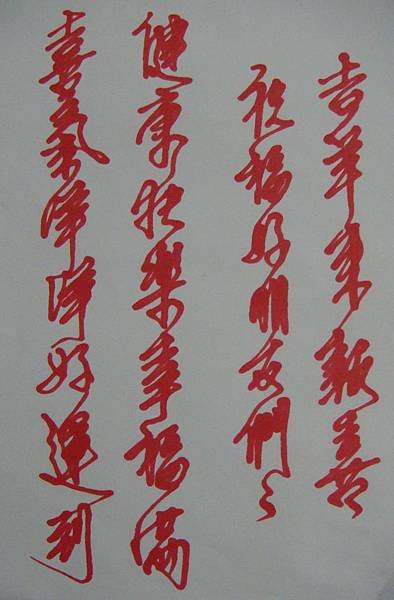 吉羊來報喜
祝福好朋友們
健康快樂幸福滿
喜氣洋洋好運到